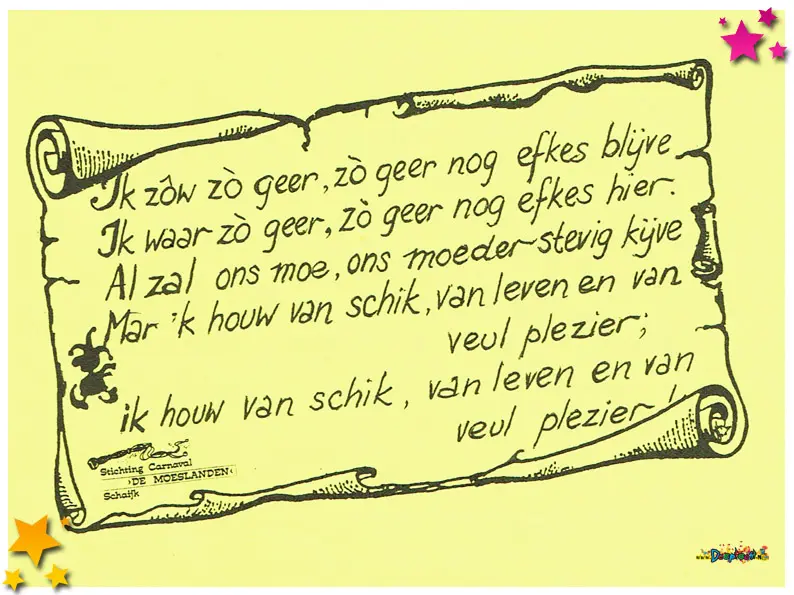 Ik zôw zò geer, zò geer nog efkes blijve
Ik waar zò geer, zò geer nog efkes hier.
Al zal ons moe, ons moeder stevig kijve
Mar 'k houw van schik, van leven en van
veul plezier;
ik houw van schik, van leven en van
veul plezier!
Stichting Carnaval
›DE MOESLANDEN‹
Schaijk